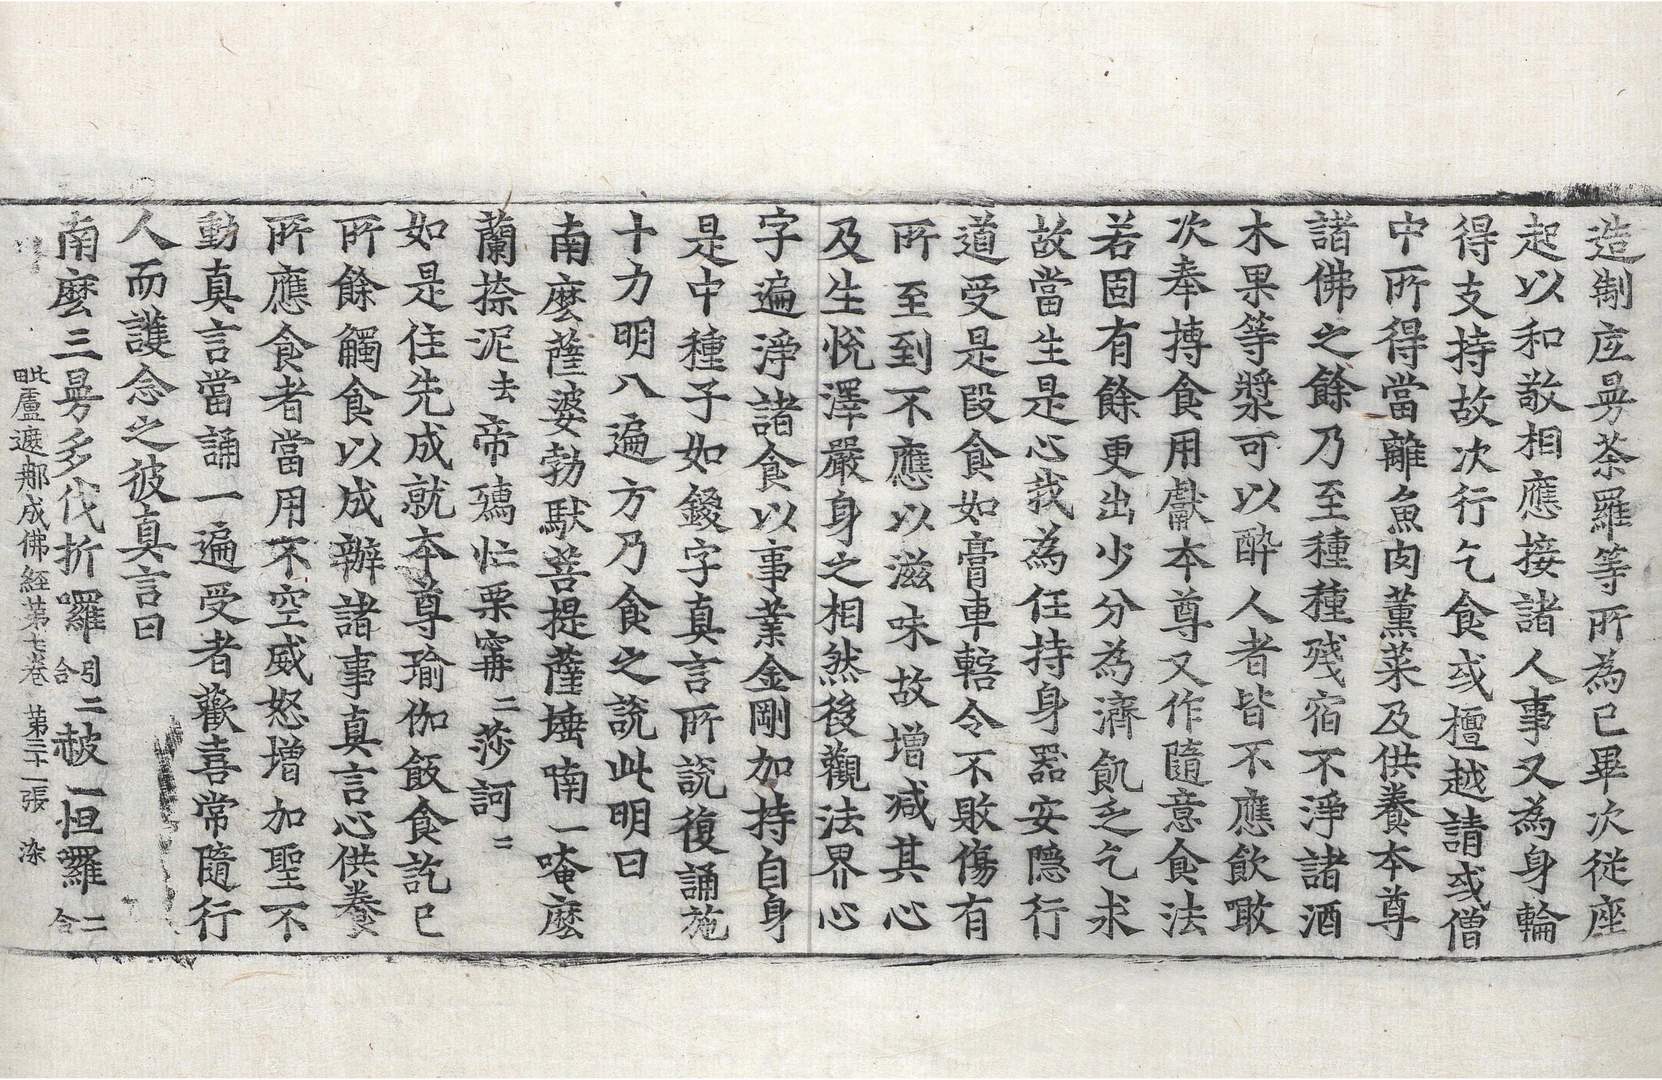 造制底曼荼羅等所為已畢次從座
起以和敬相應接諸人事又為身輪
得支持故次行乞食或檀越請或僧
中所得當離魚肉薰菜及供養本尊
諸佛之餘乃至種種殘宿不淨諸酒
木果等漿可以醉人者皆不應飲噉
次奉摶食用獻本尊又作隨意食法
若固有餘更出少分為濟飢乏乞求
故當生是心我為任持身器安隱行
道受是段食如膏車轄令不敗傷有
所至到不應以滋味故增減其心
及生悅澤嚴身之相然後觀法界心
字遍淨諸食以事業金剛加持自身
是中種子如鑁字真言所說復誦施
十力明八遍方乃食之說此明曰
南麼薩婆勃馱菩提薩埵喃一唵麼
蘭捺泥去帝孺忙栗寗二莎訶二
如是住先成就本尊瑜伽飯食訖已
所餘觸食以成辦諸事真言心供養
所應食者當用不空威怒增加聖不
動真言當誦一遍受者歡喜常隨行
人而護念之彼真言曰
南麼三曼多伐折囉引二合赧一怛羅二合
毗盧遮那成佛經第七卷 第二十一張 染